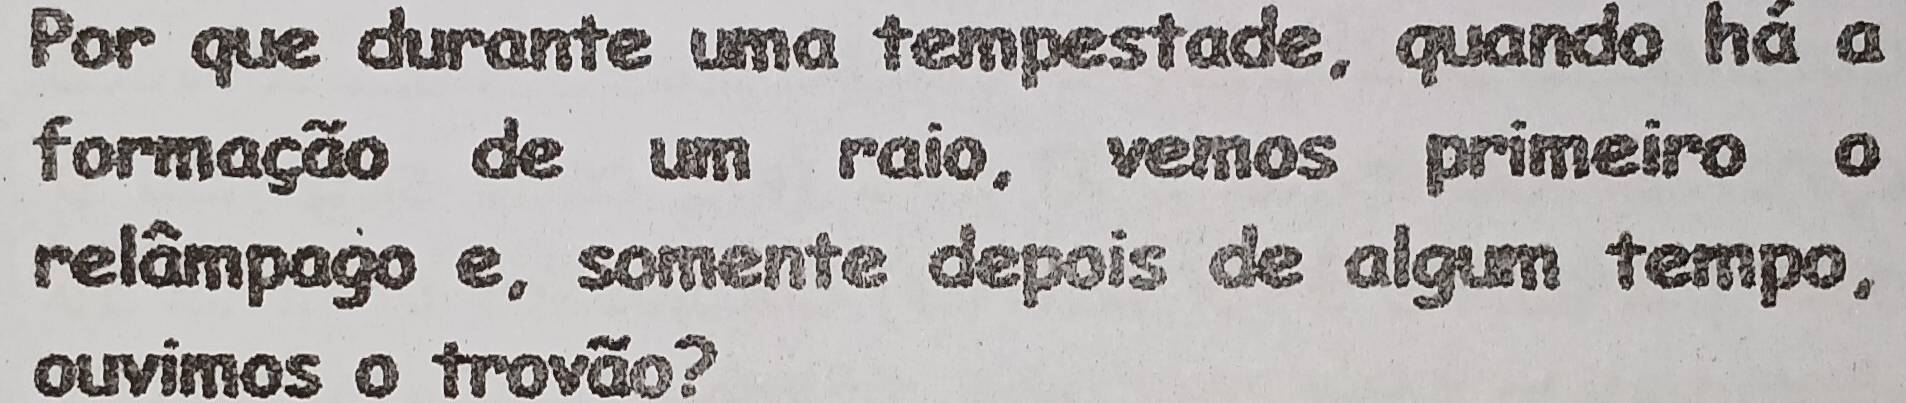 Por que durante uma tempestade, quando há a
formação de um raio, vemos primeiro o
relâmpago e, somente depois de algum tempo,
ouvimos o trovão?